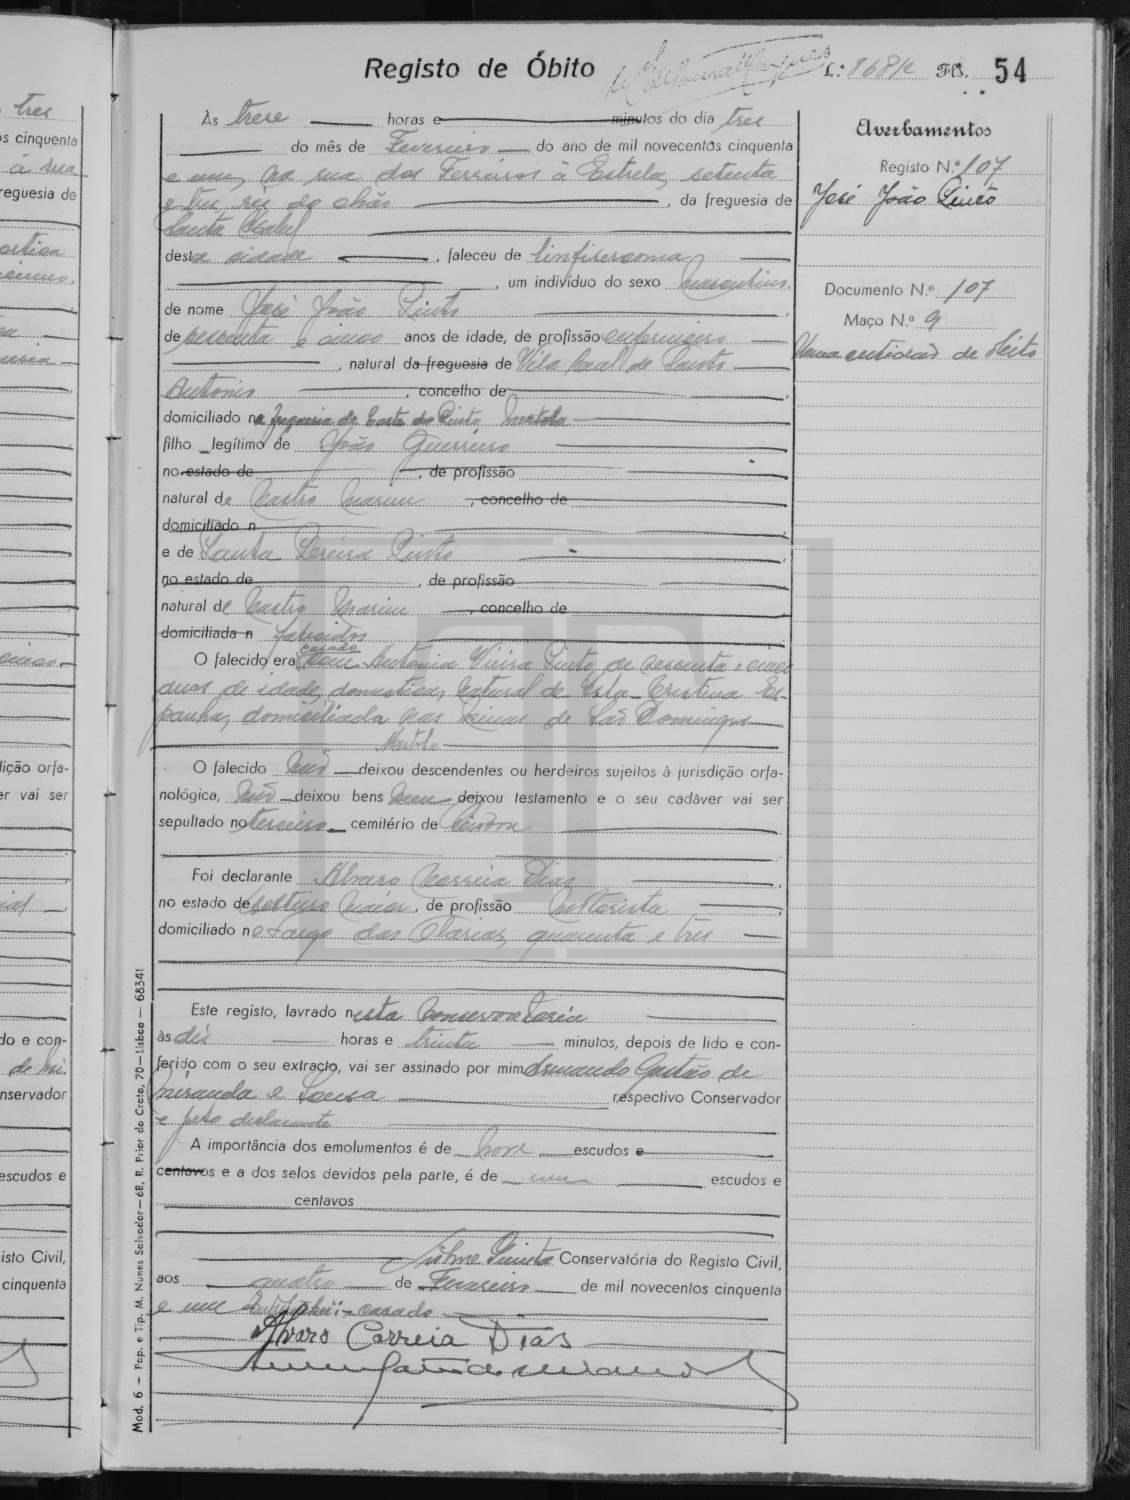 Registo de Óbito
L.: 868/c Fls. 54
Às trese horas e minutos do dia tres
do mês de Fevereiro do ano de mil novecentos cinquenta
e um, na rua dos Ferreiros à Estrela, setenta
e tres rés do chão, da freguesia de
Santa Isabel
desta cidade, faleceu de linfosarcoma
, um indivíduo do sexo masculino
de nome José João Pinto
de sessenta e cinco anos de idade, de profissão enfermeiro
, natural da freguesia de Vila Real de Santo
António, concelho de
domiciliado na freguesia de Corte do Pinto Mertola
filho legítimo de João Guerreiro
no estado de, de profissão
natural de Castro Marim, concelho de
domiciliado n
e de Santa Pereira Pinto
no estado de, de profissão
natural de Castro Marim, concelho de
domiciliada n falecidos
casado
O falecido era com Antónia Vieira Pinto, de sessenta e cinco
anos de idade, domestica, natural de Isla-Cristina Es-
panha, domiciliada nas Minas de São Domingos
Mertola
O falecido não deixou descendentes ou herdeiros sujeitos à jurisdição orfa-
nológica, não deixou bens nem deixou testamento e o seu cadáver vai ser
sepultado no terceiro cemitério de Lisboa
Foi declarante Alvaro Correia Dias
no estado de solteiro maior, de profissão motorista
domiciliado no Largo das Olarias, quarenta e tres
Este registo, lavrado nesta Conservatória
às dés horas e trinta minutos, depois de lido e con-
ferido com o seu extracto, vai ser assinado por mim Armando Gastão de
Miranda e Sousa respectivo Conservador
e pelo declarante
A importância dos emolumentos é de nove escudos e
centavos e a dos selos devidos pela parte, é de um escudos e
centavos
Lisboa Quinta Conservatória do Registo Civil,
aos quatro de Fevereiro de mil novecentos cinquenta
e um Entrelinhei: casado
Alvaro Correia Dias
Averbamentos
Registo N.º 107
José João Pinto
Documento N.º 107
Maço N.º 9
Uma certidão de óbito
Mod. 6 — Pap. e Tip. M. Nunes Salvador—68, R. Prior do Crato, 70—Lisboa — 68341
tres
os cinquenta
à rua
freguesia de
lição orfa-
er vai ser
do e con-
nservador
escudos e
isto Civil,
cinquenta